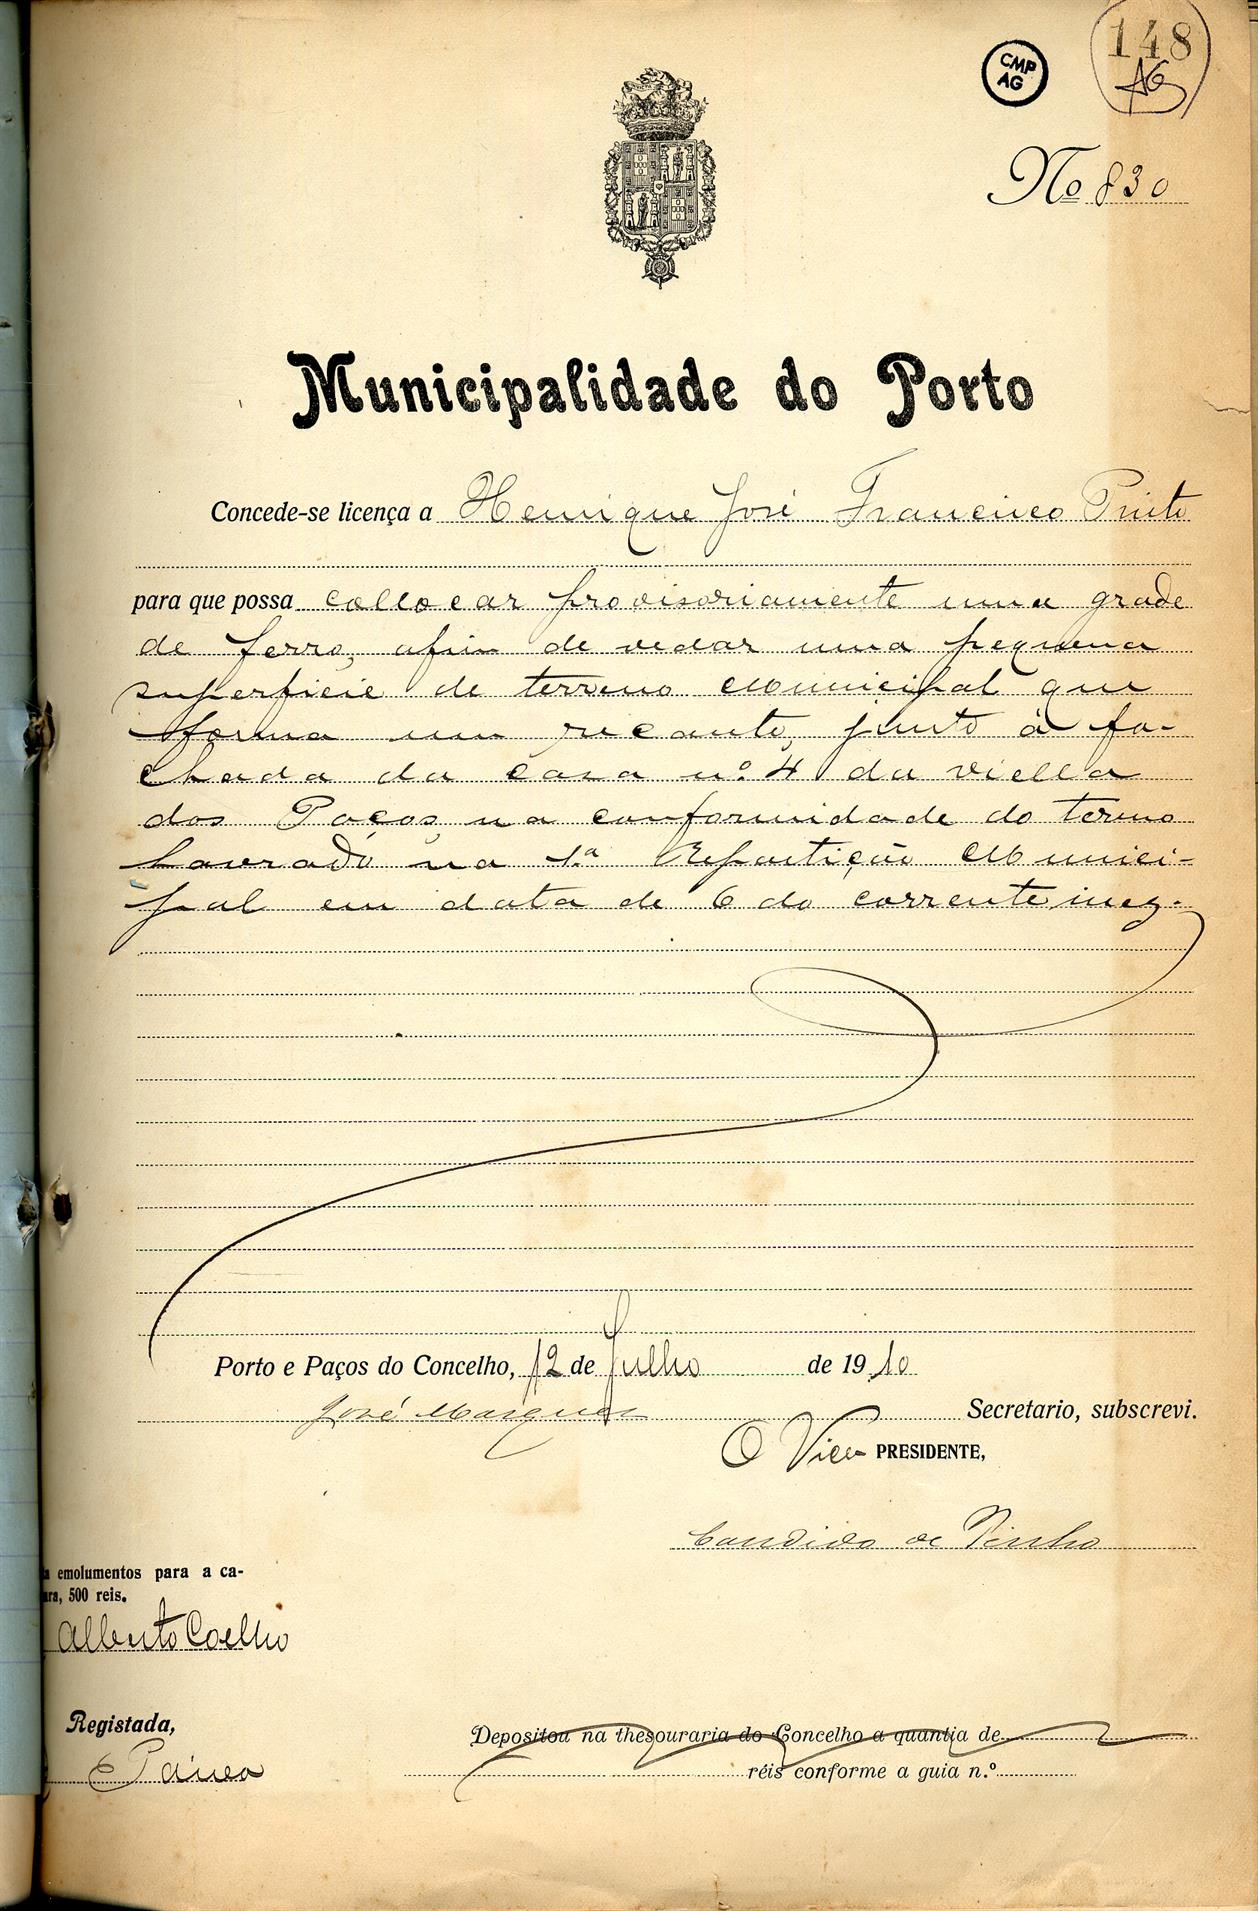 148
AG
CMP
AG
No 830
Municipalidade do Porto
Concede-se licença a Henrique José Francisco Pinto
para que possa collocar provisoriamente uma grade
de ferro, afim de vedar uma pequena
superficie de terreno municipal que
forma um recanto, junto á fa-
chada da casa nº 4 da viella
dos Poços, na conformidade do termo
lavrado na 1ª Repartição Munici-
pal em data de 6 do corrente mez.
Porto e Paços do Concelho, 12 de Julho de 1910
José Marques Secretario, subscrevi.
O Vice PRESIDENTE,
Candido de Pinho
emolumentos para a ca-
ara, 500 reis.
Alberto Coelho
Registada,
Depositou na thesouraria do Concelho a quantia de
réis conforme a guia n.º